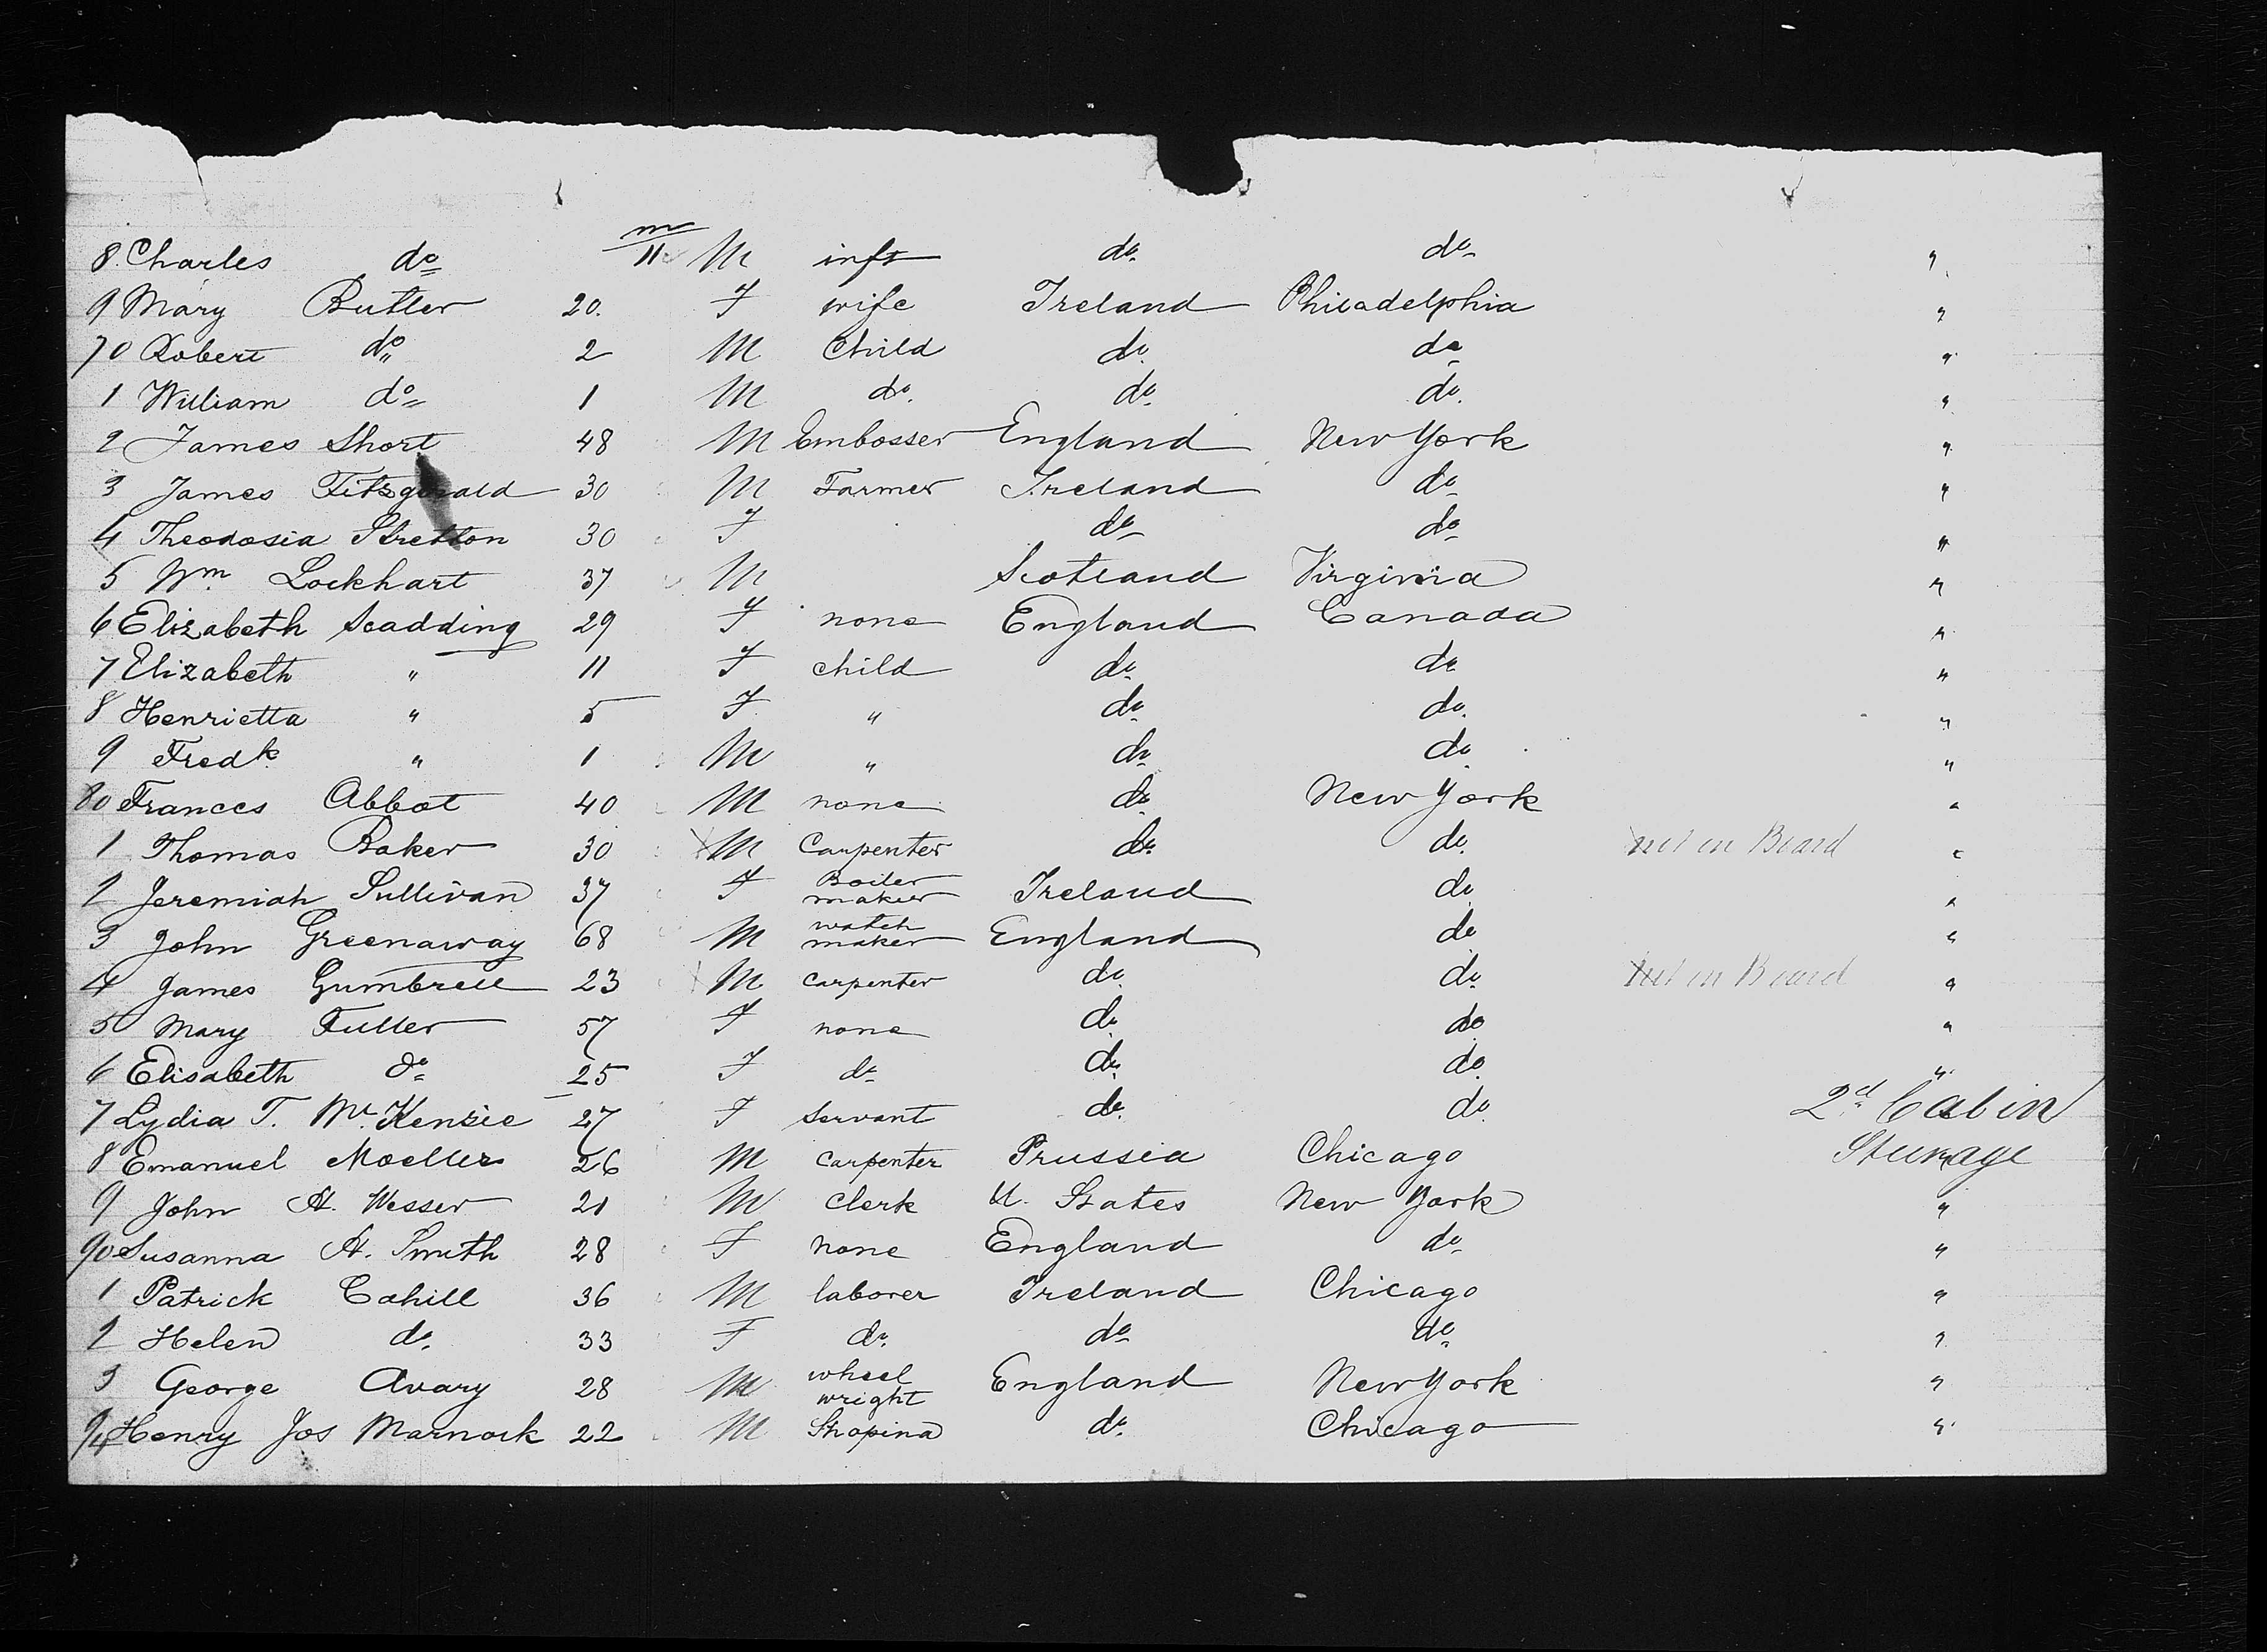 8 Charles do 11 mo M inft do do "
9 Mary Butler 20. F wife Ireland Philadelphia "
70 Robert do 2 M Child do do "
1 William do 1 M do do do "
2 James Short 48 M Embosser England New York "
3 James Fitzgerald 30 M Farmer Ireland do "
4 Theodosia Stretton 30 F do do "
5 Wm. Lockhart 37 M Scotland Virginia "
6 Elizabeth Scadding 29 F none England Canada "
7 Elizabeth " 11 F child do do "
8 Henrietta " 5 F " do do "
9 Fredk " 1 M " do do "
80 Frances Abbot 40 M none do New York "
1 Thomas Baker 30 M Carpenter do do not on Board "
2 Jeremiah Sullivan 37 F Boiler maker Ireland do "
3 John Greenaway 68 M watch maker England do "
4 James Gumbrell 23 M carpenter do do not on Board "
5 Mary Fuller 57 F none do do "
6 Elisabeth do 25 F do do do "
7 Lydia T. McKensie 27 F Servant do do 2d Cabin
8 Emanuel Moeller 26 M carpenter Prussia Chicago Steerage
9 John H. Wesser 21 M clerk U. States New York "
90 Susanna H. Smith 28 F none England do "
1 Patrick Cahill 36 M laborer Ireland Chicago "
2 Helen do 33 F do do do "
3 George Avary 28 M wheel wright England New York "
94 Henry Jos 22 M do Chicago "